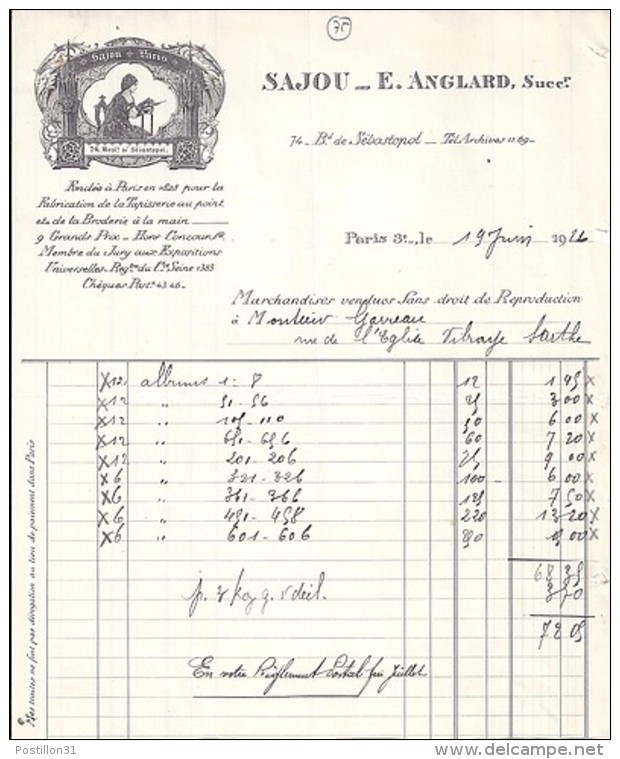 75
Sajou Paris
74, Boulᵈ de Sébastopol.
SAJOU _ E. ANGLARD, Succʳ
74 _ Bᵈ de Sébastopol _ Tél. Archives 11.69_
Fondée à Paris en 1828 pour la
Fabrication de la Tapisserie au point
et de la Broderie à la main
9 Grands Prix _ Hors Concours
Membre du Jury aux Expositions
Universelles _ Regᵗʳᵉ du Cᵉ Seine 1383
Chèques Postˣ 43.46_
Paris 3ᵉ, le 19 Juin 1926
Marchandises vendues Sans droit de Reproduction
à Monsieur Gavreau
rue de l'Eglise Vibraye Sarthe
x 12 albums 1 - 8 12 1 45 x
x 12 " 51 - 56 25 3 00 x
x 12 " 105 - 110 50 6 00 x
x 12 " 651 - 656 60 7 20 x
x 12 " 201 - 206 75 9 00 x
x 6 " 321 - 326 100 - 6 00 x
x 6 " 361 - 366 125 7 50 x
x 6 " 451 - 458 220 13 20 x
x 6 " 601 - 606
68 35
3 70
72 05
En votre Règlement Postal fin Juillet
Mes traites ne font pas dérogation au lieu de paiement dans Paris
Postillon31
www.delcampe.net